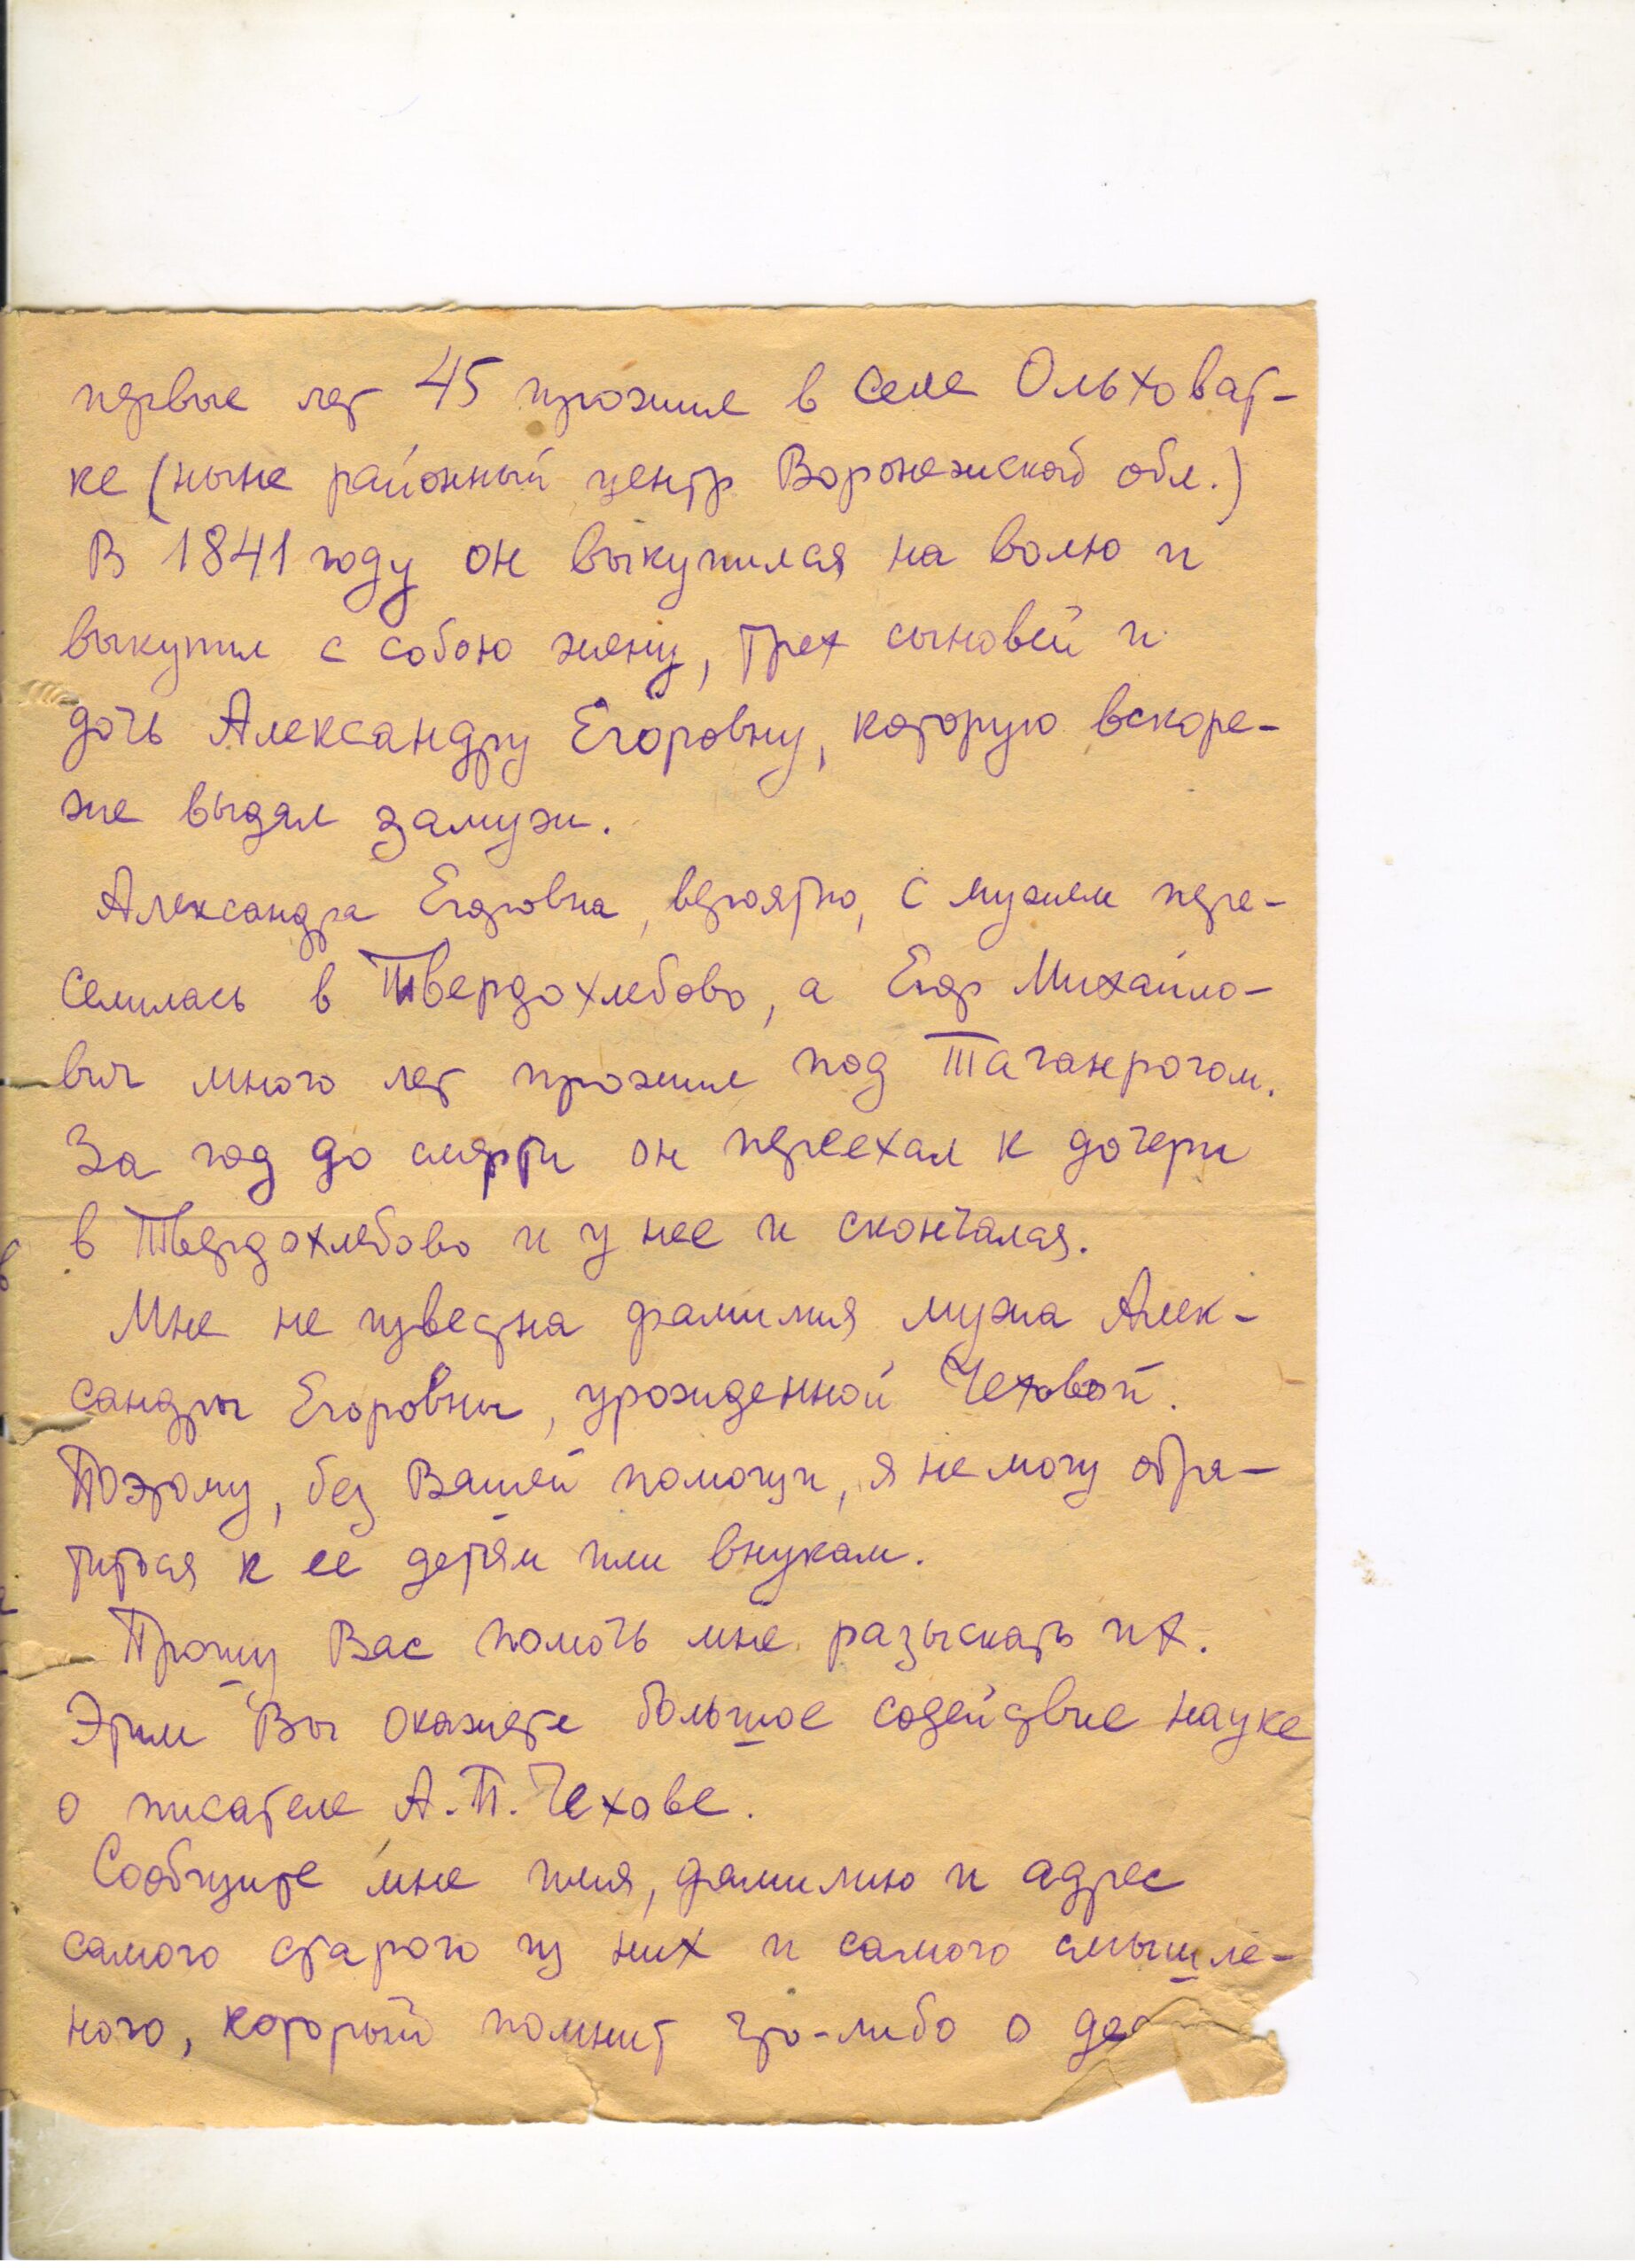 первые лет 45 прожил в селе Ольховат-
ке (ныне районный центр Воронежской обл.)
В 1841 году он выкупился на волю и
выкупил с собою жену, трех сыновей и
дочь Александру Егоровну, которую вскоре-
же выдал замуж.
Александра Егоровна, вероятно, с мужем пере-
селилась в Твердохлебово, а Егор Михайло-
вич много лет прожил под Таганрогом.
За год до смерти он переехал к дочери
в Твердохлебово и у нее и скончался.
Мне не известна фамилия мужа Алек-
сандры Егоровны, урожденной Чеховой.
Поэтому, без Вашей помощи, я не могу обра-
титься к ее детям или внукам.
Прошу Вас помочь мне разыскать их.
Этим Вы окажете большое содействие науке
о писателе А.П. Чехове.
Сообщите мне имя, фамилию и адрес
самого старого из них и самого смышле-
ного, который помнит что-либо о